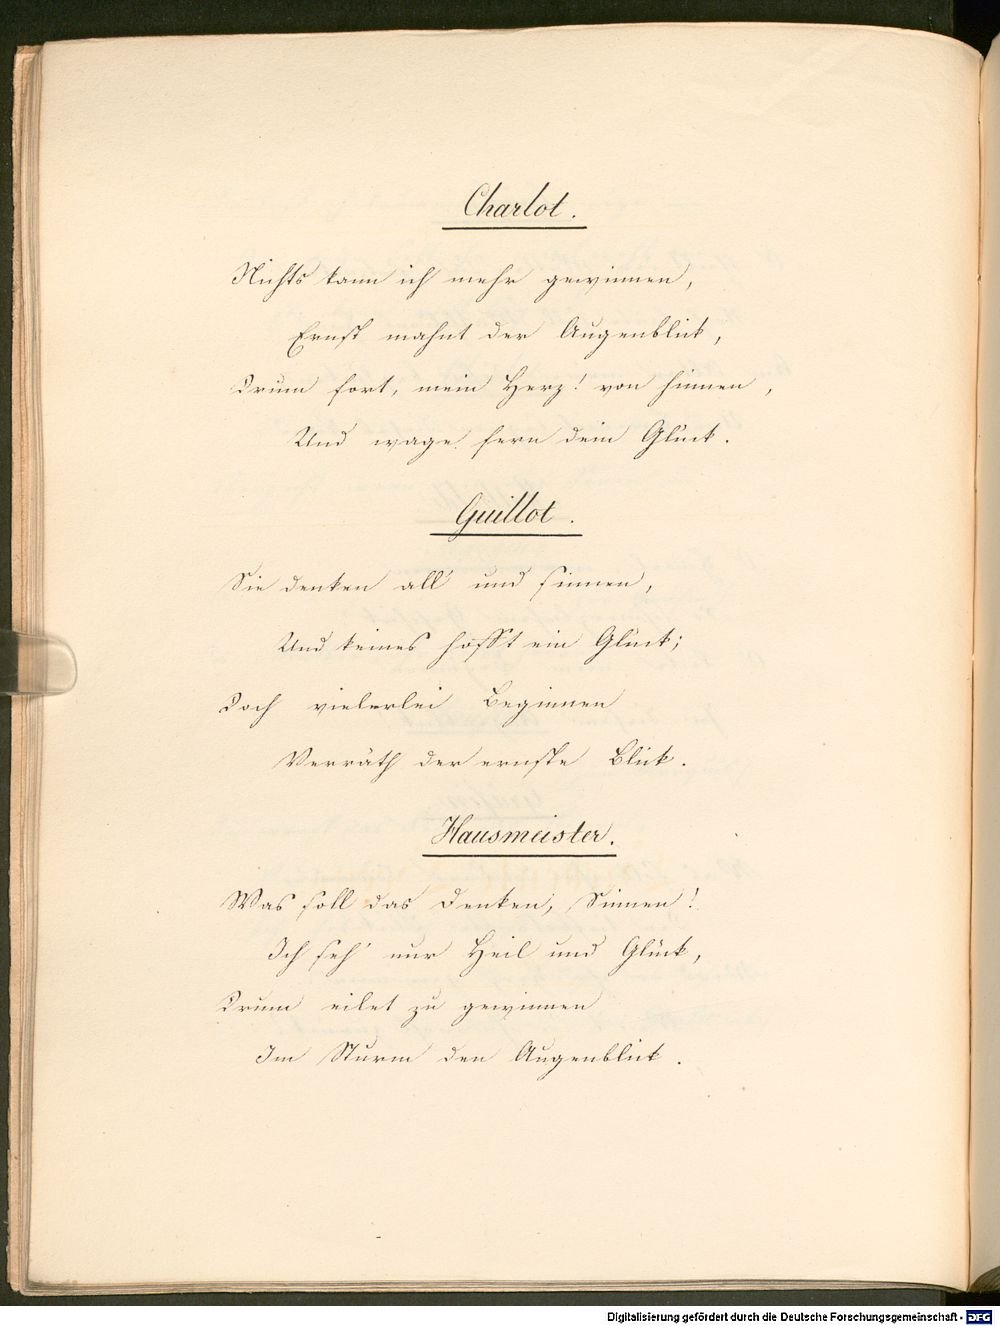 Charlot.
Nichts kann ich mehr gewinnen,
Ernst mahnt der Augenblick,
Drum fort, mein Herz! von hinnen,
Und wage fern dein Glück.
Guillot.
Sie denken all' und sinnen,
Und keines hofft ein Glück;
Doch vielerlei Beginnen
Verräth der ernste Blick.
Hausmeister.
Was soll das Denken, Sinnen!
Ich seh' nur Heil und Glück,
Drum eilet zu gewinnen
Im Sturm den Augenblick.
Digitalisierung gefördert durch die Deutsche Forschungsgemeinschaft - DFG